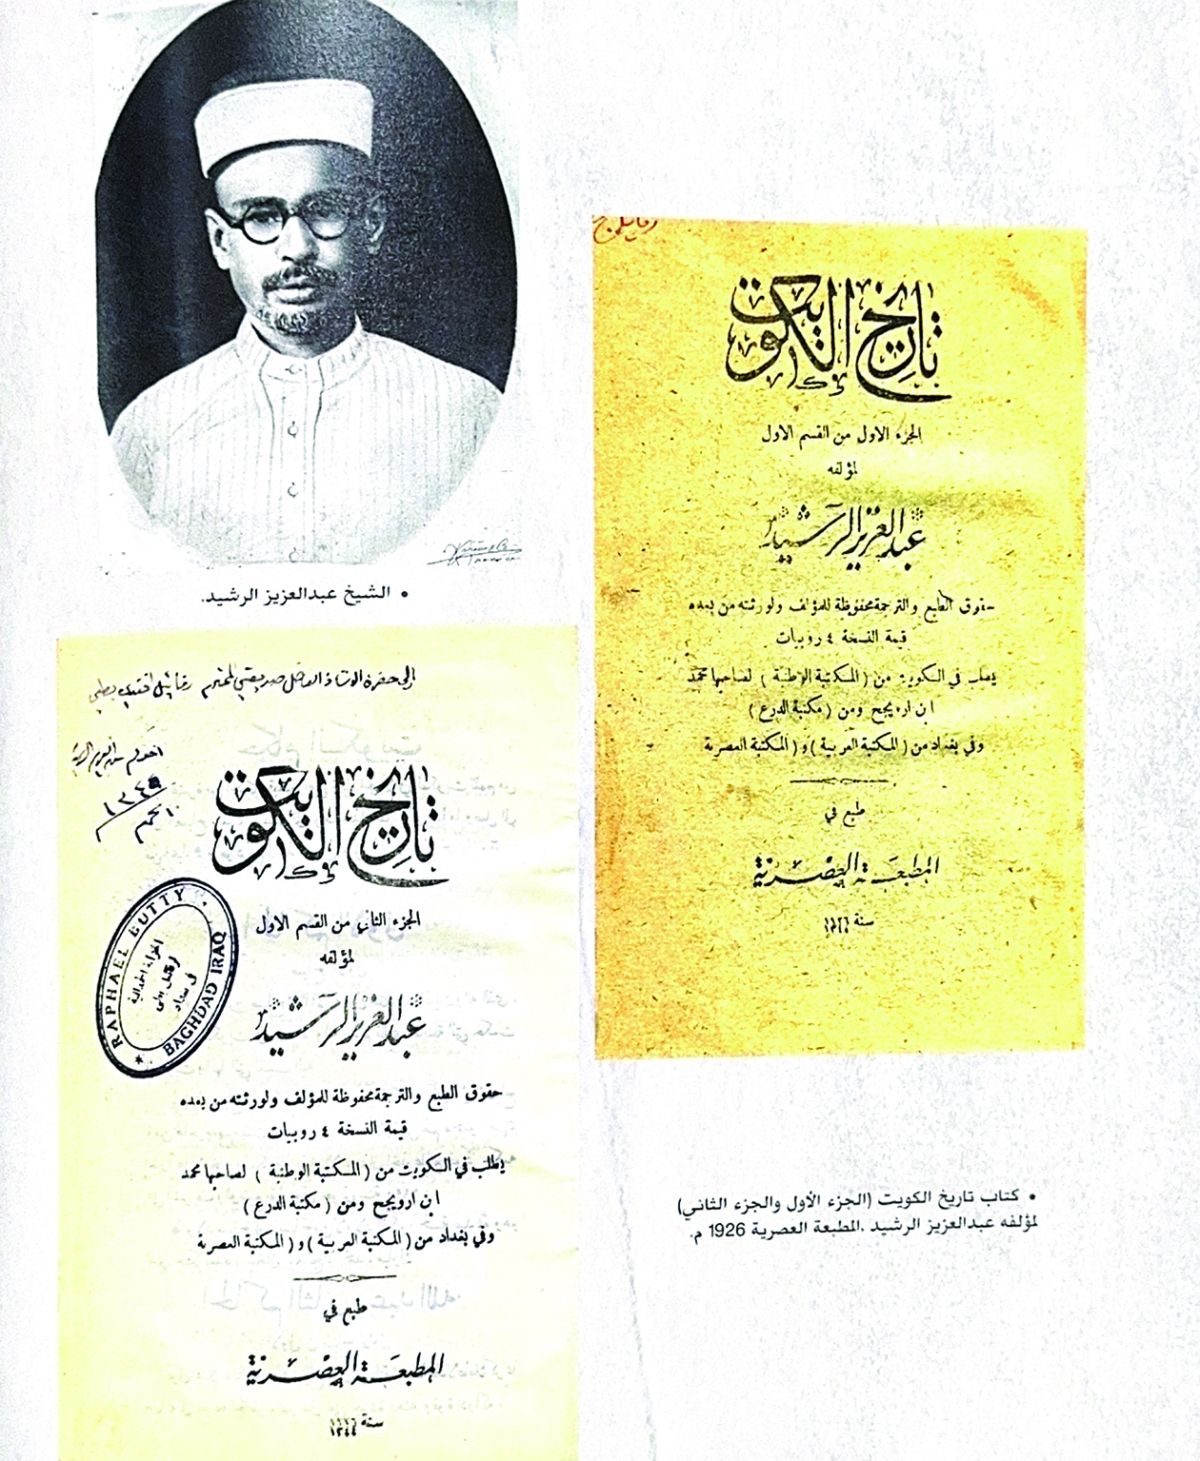 • الشيخ عبدالعزيز الرشيد.
تاريخ الكويت
الجزء الاول من القسم الاول
لمؤلفه
عبد العزيز الرشيد
حقوق الطبع والترجمة محفوظة للمؤلف ولورثته من بعده
قيمة النسخة ٤ روبيات
يطلب في الكويت من ( المكتبة الوطنية ) لصاحبها محمد
ابن ارويجح ومن ( مكتبة الدرع )
وفي بغداد من ( المكتبة العربية ) و ( المكتبة العصرية
طبع في
المطبعة العصرية
سنة
إلى حضرة الاستاذ الفاضل صديقي المحترم رفائيل افندي بطي
١٣٤٩
تاريخ الكويت
الجزء الثاني من القسم الاول
لمؤلفه
عبد العزيز الرشيد
RAPHAEL BUTTY
BAGHDAD IRAQ
حقوق الطبع والترجمة محفوظة للمؤلف ولورثته من بعده
قيمة النسخة ٤ روبيات
يطلب في الكويت من ( المكتبة الوطنية ) لصاحبها محمد
ابن ارويجح ومن ( مكتبة الدرع )
وفي بغداد من ( المكتبة العربية ) و ( المكتبة العصرية
طبع في
المطبعة العصرية
سنة
• كتاب تاريخ الكويت (الجزء الأول والجزء الثاني)
لمؤلفه عبدالعزيز الرشيد .المطبعة العصرية 1926 م.